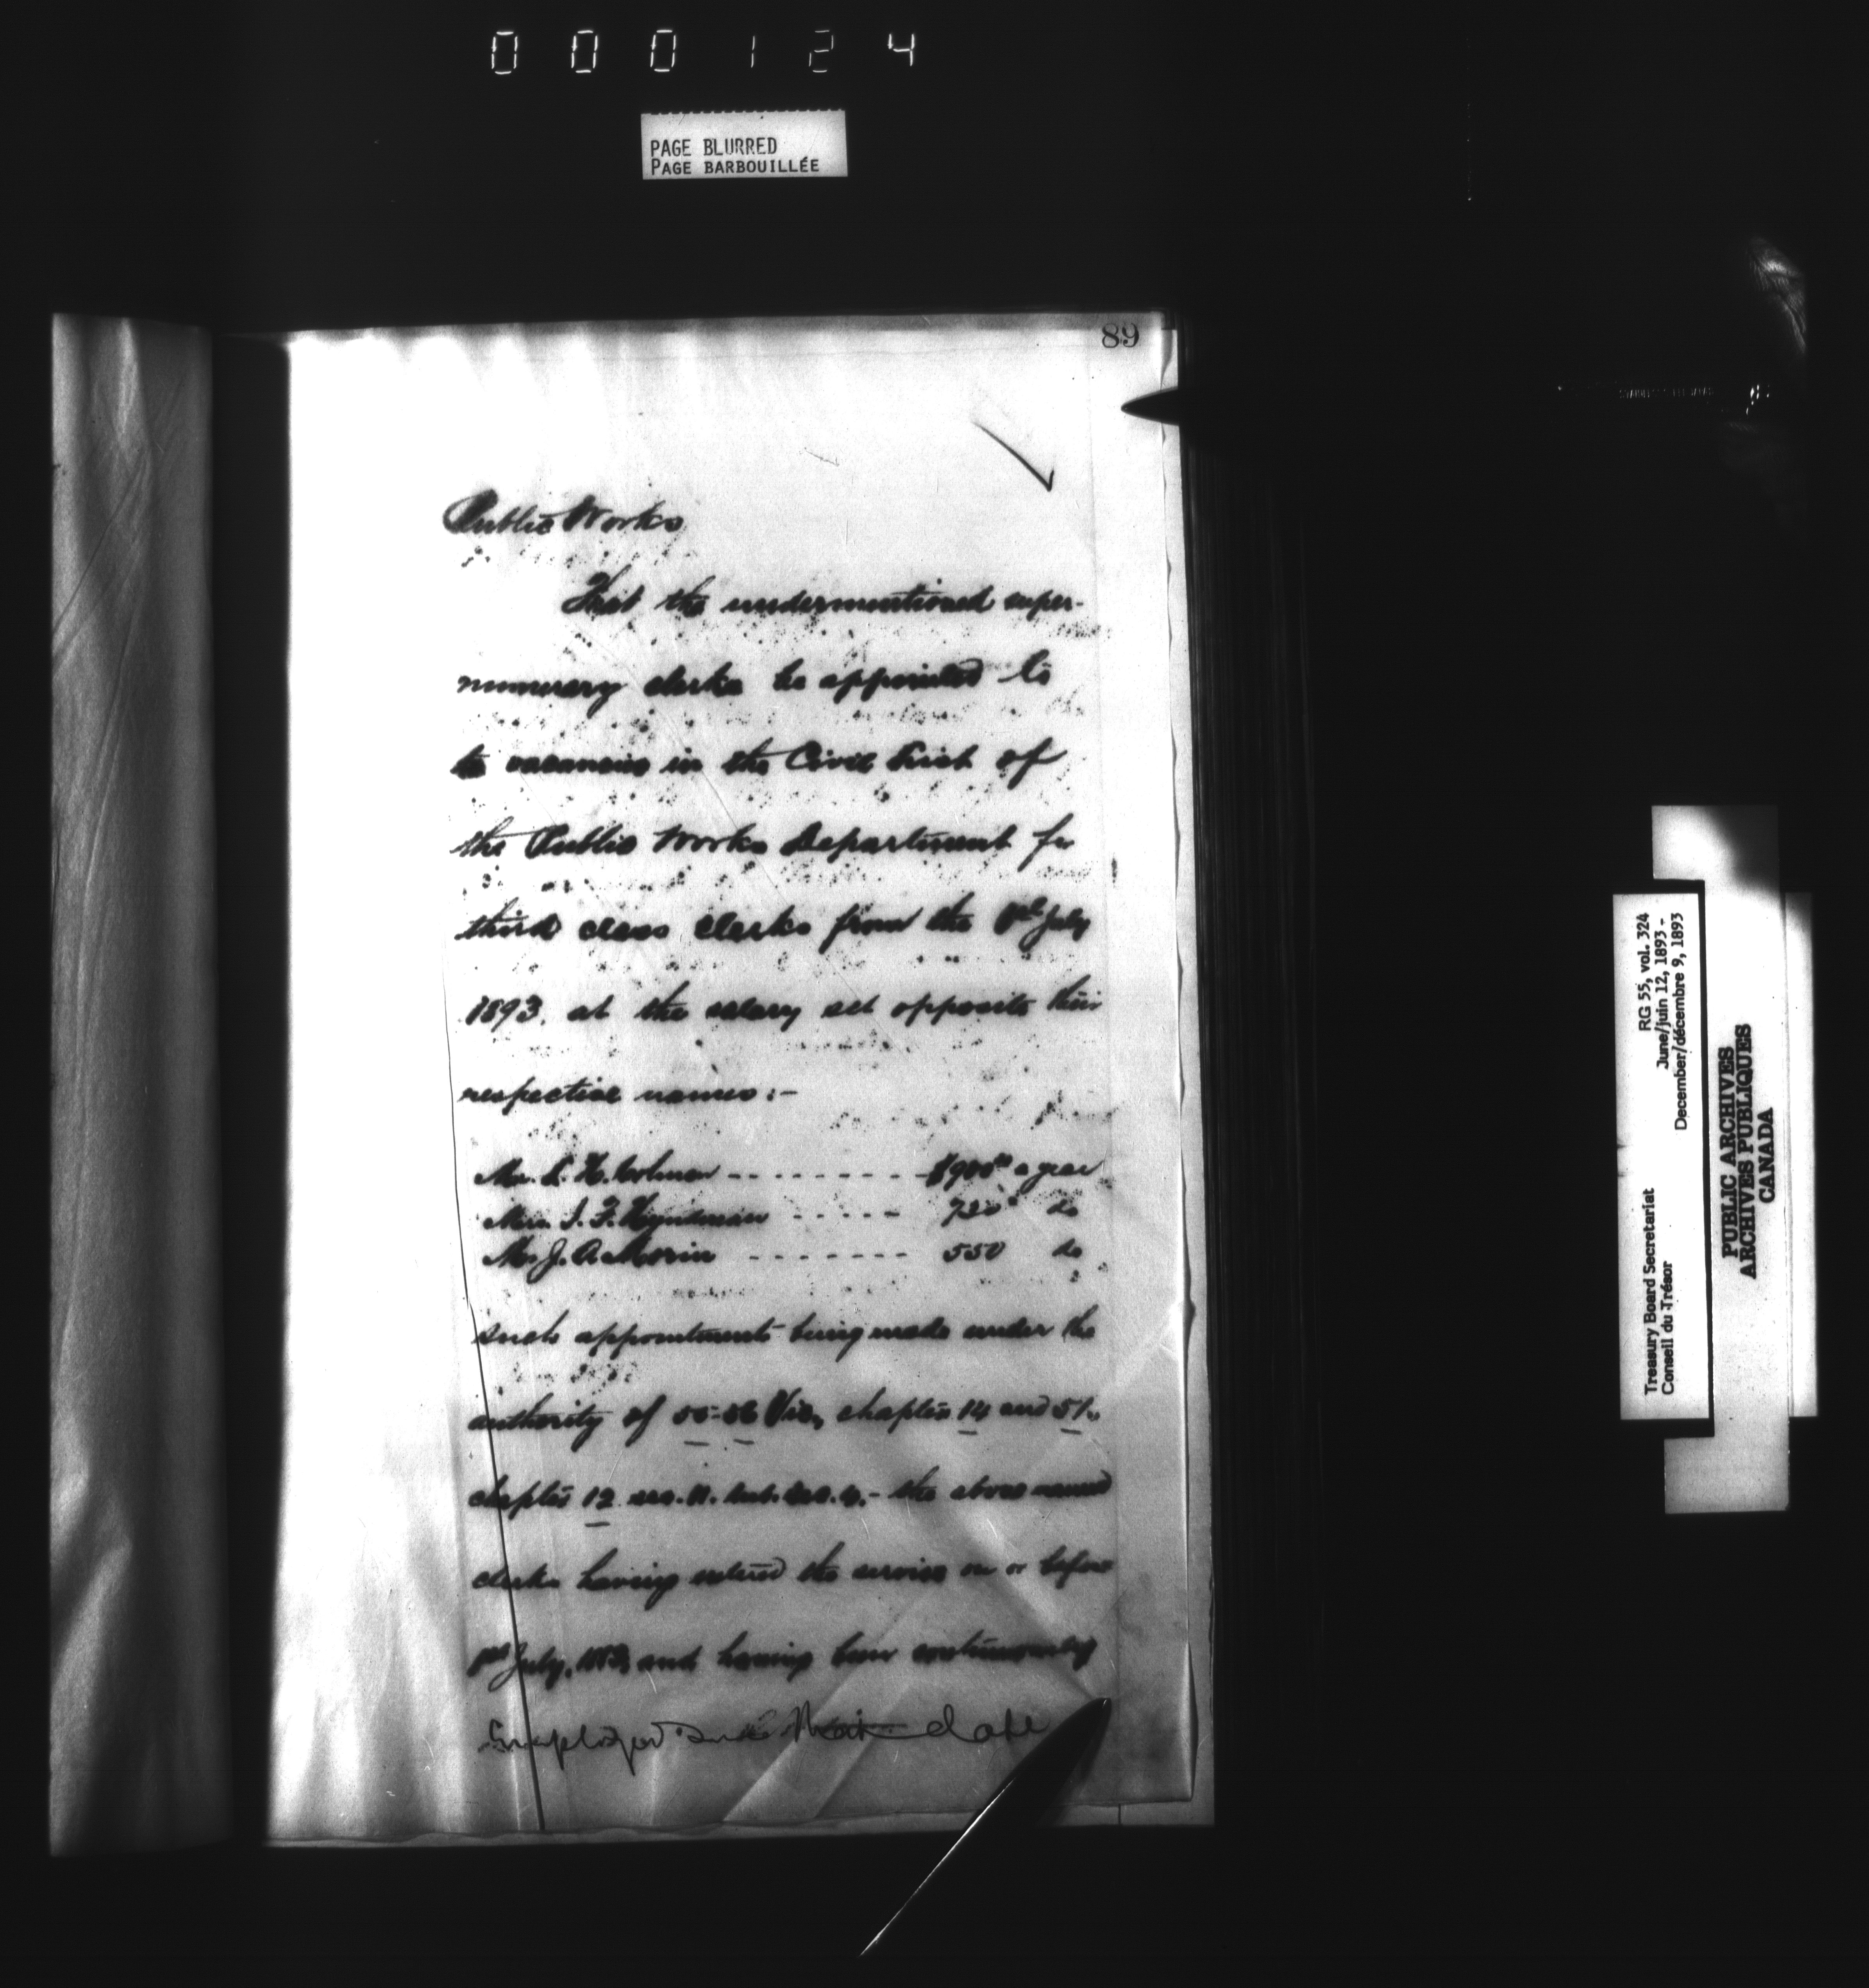 000124
PAGE BLURRED
PAGE BARBOUILLÉE
89
Public Works
That the undermentioned super-
numerary clerks be appointed to
to vacancies in the Civil List of
the Public Works Department for
third class clerks from the 1st July
1893, at the salary set opposite their
respective names:-
Mr. L. H. Colman --------- $900 a year
Mrs. I. F. ----- 720 do
Mr. J. A. Morin -------- 550 do
such appointments being made under the
authority of 55-56 Vic, chapter 14 and 51.,
chapter 12 sec. 11. sub. sec. 4.- the above named
clerks having entered the service on or before
1st July, and having been continuously
Employed since that date
RG 55, vol. 324
June/juin 12, 1893 -
December/décembre 9, 1893
Treasury Board Secretariat
Conseil du Trésor
PUBLIC ARCHIVES
ARCHIVES PUBLIQUES
CANADA